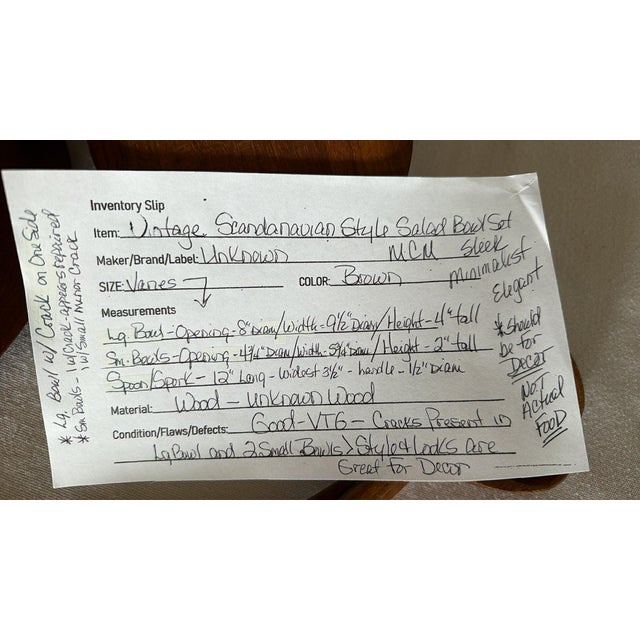 Inventory Slip
Item: Vintage Scandanavian Style Salad Bowl Set
Maker/Brand/Label: Unknown MCM Sleek
SIZE: Varies COLOR: Brown Minimalist
Elegant
Measurements
Lg. Bowl - Opening - 8" Diam/Width - 9 1/2" Diam/Height - 4" tall
Sm. Bowls - Opening - 4 3/4" Diam/Width - 5 3/4" Diam/Height - 2" tall
Spoon/Spork - 12" Long - Widest 3 1/2" - handle - 1/2" Diam
Material: Wood - Unknown Wood
Condition/Flaws/Defects: Good - VTG - Cracks Present in
Lg Bowl and 2 Small Bowls > Style & Looks are
Great for Decor
* Should
be for
Decor
NOT
Actual
FOOD
* Lg. Bowl w/ Crack on One Side
* Sm Bowls - 1 w/Crack - appears repaired
1 w/Small Minor Crack